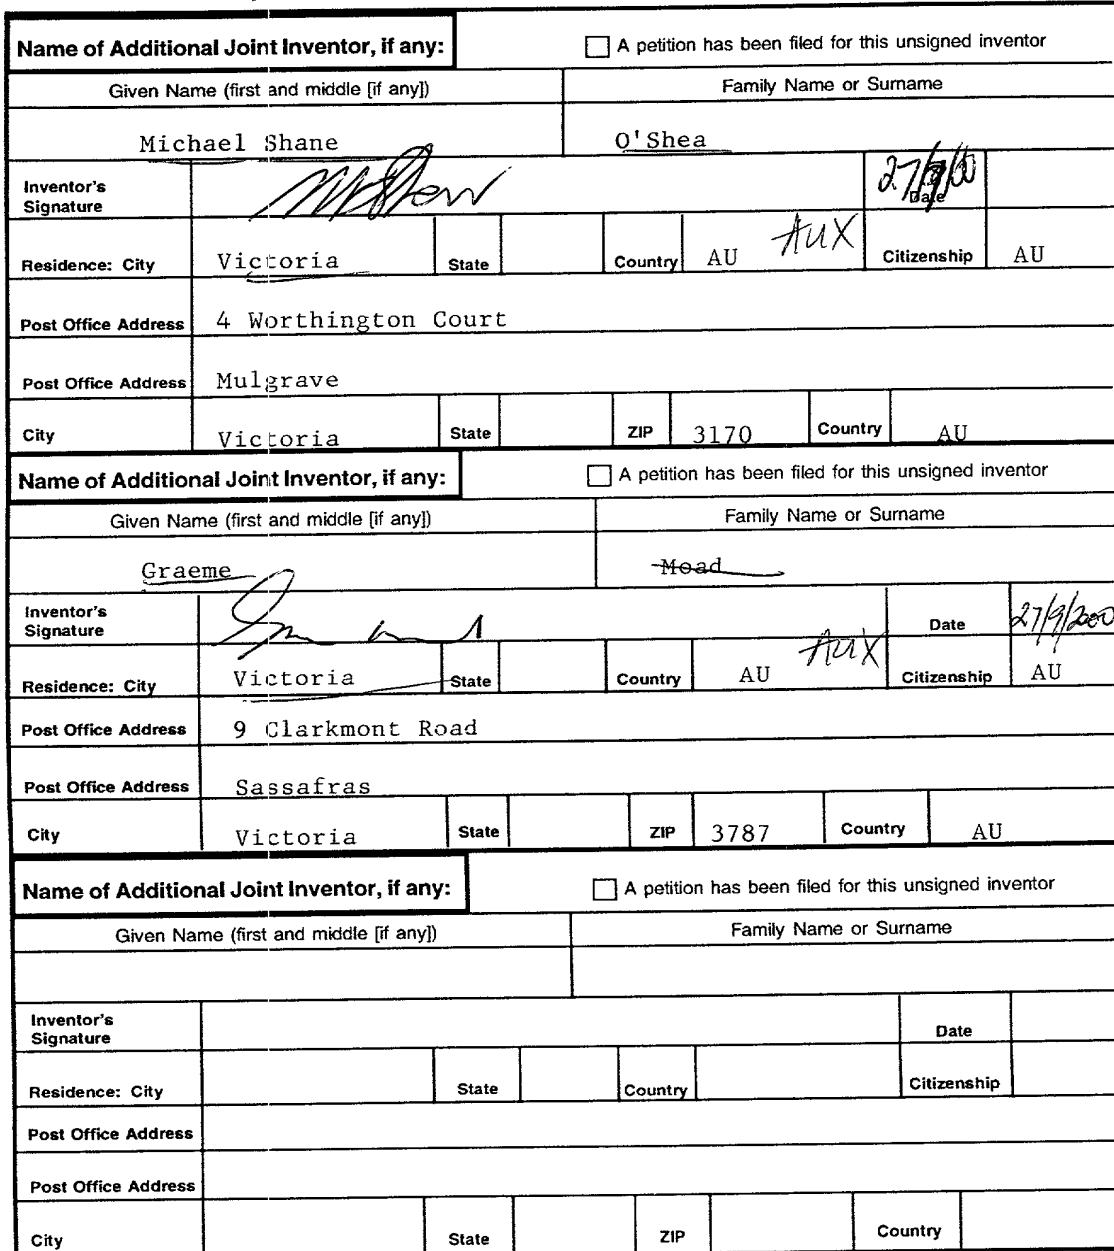 Name of Additional Joint Inventor, if any: A petition has been filed for this unsigned inventor
Given Name (first and middle [if any]) Family Name or Surname
Michael Shane O'Shea
Inventor's Signature 27/9/00 Date
Residence: City Victoria State Country AU AUX Citizenship AU
Post Office Address 4 Worthington Court
Post Office Address Mulgrave
City Victoria State ZIP 3170 Country AU
Name of Additional Joint Inventor, if any: A petition has been filed for this unsigned inventor
Given Name (first and middle [if any]) Family Name or Surname
Graeme Moad
Inventor's Signature Date 27/9/2000
Residence: City Victoria State Country AU AUX Citizenship AU
Post Office Address 9 Clarkmont Road
Post Office Address Sassafras
City Victoria State ZIP 3787 Country AU
Name of Additional Joint Inventor, if any: A petition has been filed for this unsigned inventor
Given Name (first and middle [if any]) Family Name or Surname
Inventor's Signature Date
Residence: City State Country Citizenship
Post Office Address
Post Office Address
City State ZIP Country